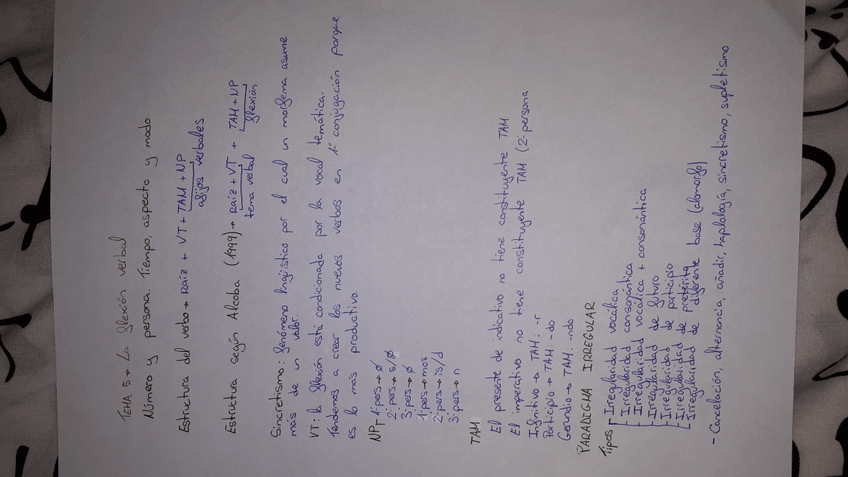 TEMA 5 → La flexión verbal
Número y persona. Tiempo, aspecto y modo
Estructura del verbo → Raíz + VT + TAM + NP
afijos verbales
Estructura según Alcoba (1999) → Raíz + VT + TAM + NP
tema verbal flexión
Sincretismo: fenómeno lingüístico por el cual un morfema asume
más de un valor.
VT: la flexión está condicionada por la vocal temática.
Tendemos a crear los nuevos verbos en 1ª conjugación porque
es la más productiva
NP 1ª pers → ∅
2ª pers → s/∅
3ª pers → ∅
1ª pers → mos
2ª pers → is/d
3ª pers → n
TAM
El presente de indicativo no tiene constituyente TAM
El imperativo no tiene constituyente TAM (2ª persona
Infinitivo → TAM: -r
Participio → TAM: -do
Gerundio → TAM: -ndo
PARADIGMA IRREGULAR
Tipos Irregularidad vocálica
Irregularidad consonántica
Irregularidad vocálica + consonántica
Irregularidad de futuro
Irregularidad de participio
Irregularidad de pretérito
Irregularidad de diferente base (alomorfo)
- Cancelación, alternancia, añadir, haplología, sincretismo, supletismo